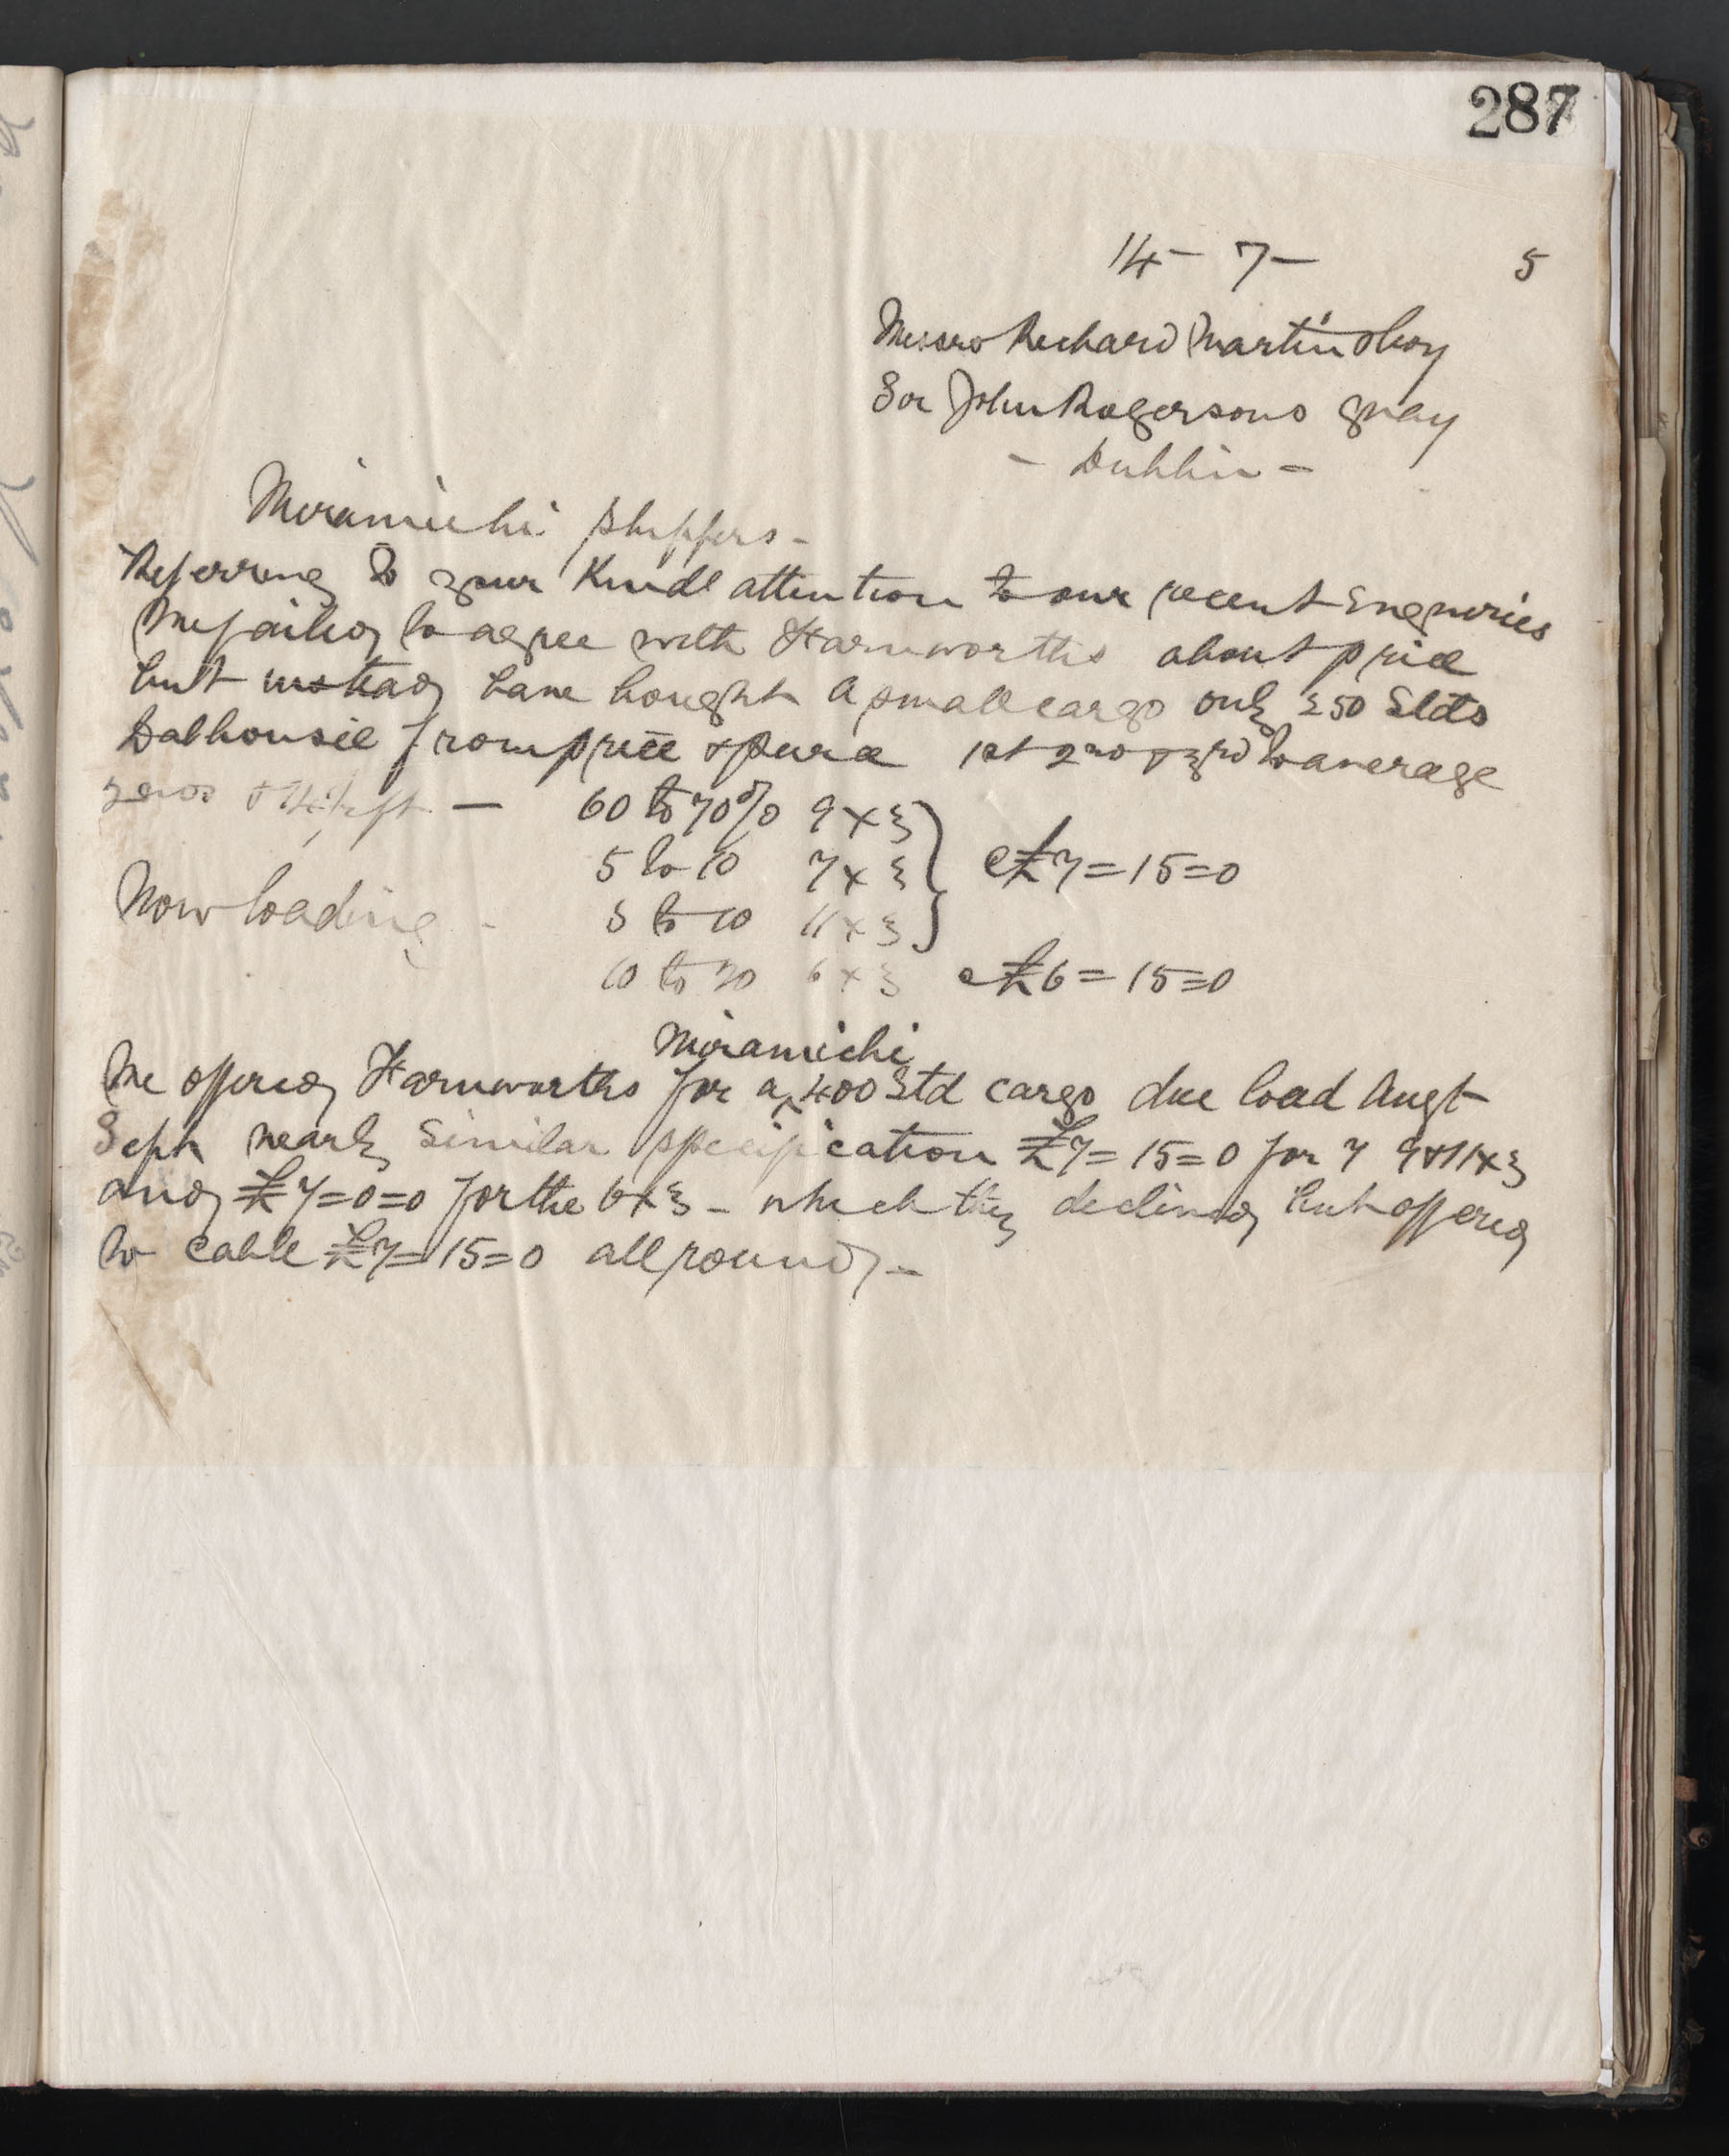 287
14 - 7 - 5
Messrs Richard Martin & Coy
Sir John Rogersons Quay
- Dublin -
Miramichi Shippers -
Referring to your kind attention to our recent Enquiries
We failed to agree with Harnworths about price
but instead have bought a small cargo only 250 Stds
Dalhousie from price & 1st 2nd & 3rd to average
& 14 ft -
60 to 70% 9 x 3
5 to 10 7 x 3 } @ £7=15=0
Now loading - 5 to 10 11 x 3
10 to 20 6 x 3 @ £6=15=0
Miramichi
We offered Harnworths for a ^ 400 Std cargo due load Augt
Sept nearly similar specification £7=15=0 for 7 9 & 11 x 3
and £7=0=0 for the 6 x 3 - which they declined but offered
to cable £7=15=0 all round -